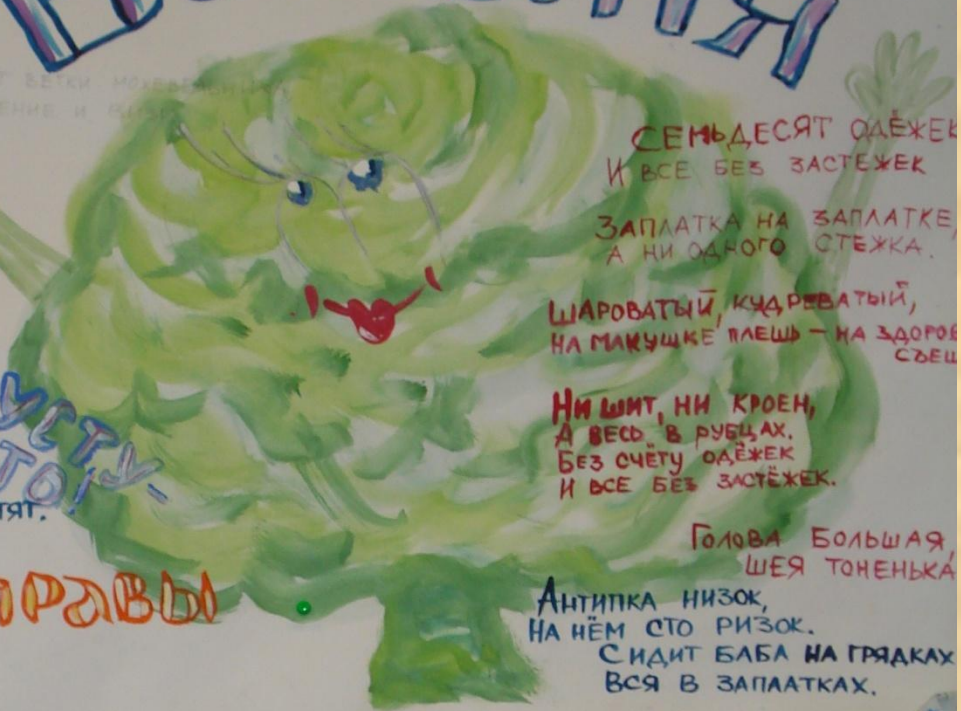 ВЕТКИ
СЕМЬДЕСЯТ ОДЁЖЕК
И ВСЕ БЕЗ ЗАСТЕЖЕК
ЗАПЛАТКА НА ЗАПЛАТКЕ,
А НИ ОДНОГО СТЕЖКА.
ШАРОВАТЫЙ, КУДРЕВАТЫЙ,
НА МАКУШКЕ ПЛЕШЬ – НА ЗДОРОВ
СЪЕШ
УСТУ
НИ ШИТ, НИ КРОЕН,
А ВЕСЬ В РУБЦАХ.
БЕЗ СЧЁТУ ОДЁЖЕК
И ВСЕ БЕЗ ЗАСТЁЖЕК.
ТЯТ.
ГОЛОВА БОЛЬШАЯ,
ШЕЯ ТОНЕНЬКА
РАВЫ
АНТИПКА НИЗОК,
НА НЁМ СТО РИЗОК.
СИДИТ БАБА НА ГРЯДКАХ
ВСЯ В ЗАПЛАТКАХ.